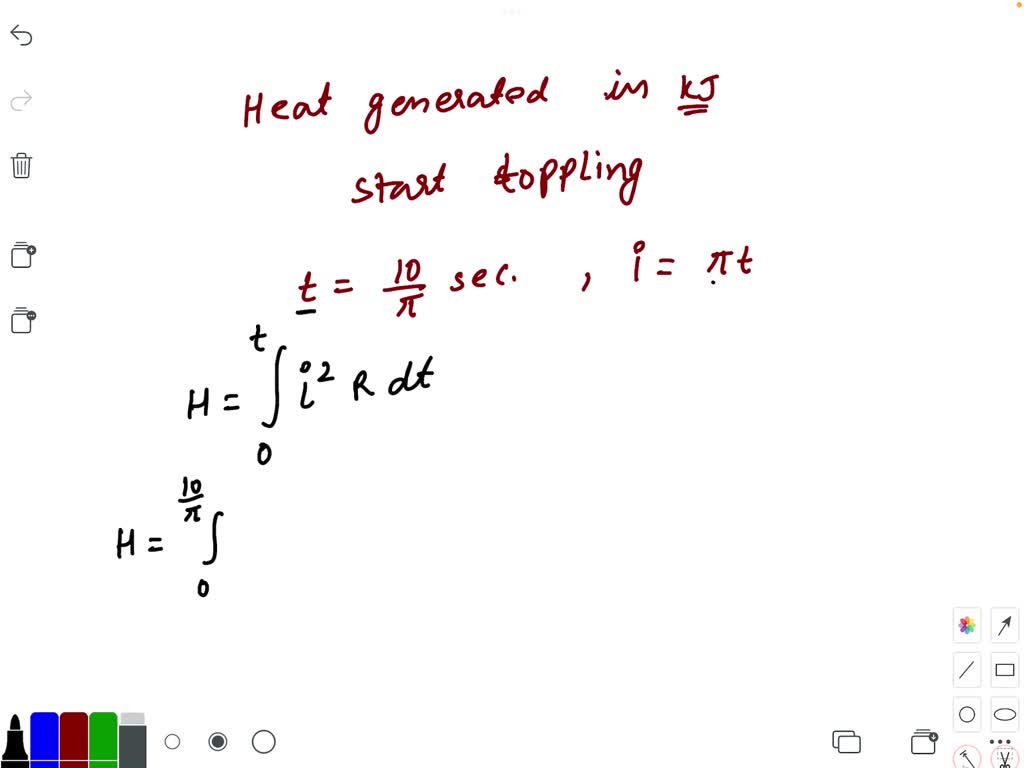 Heat generated in kJ
start toppling
t = 10/π sec. , i = πt
H = ∫₀ᵗ i² R dt
H = ∫₀^(10/π)